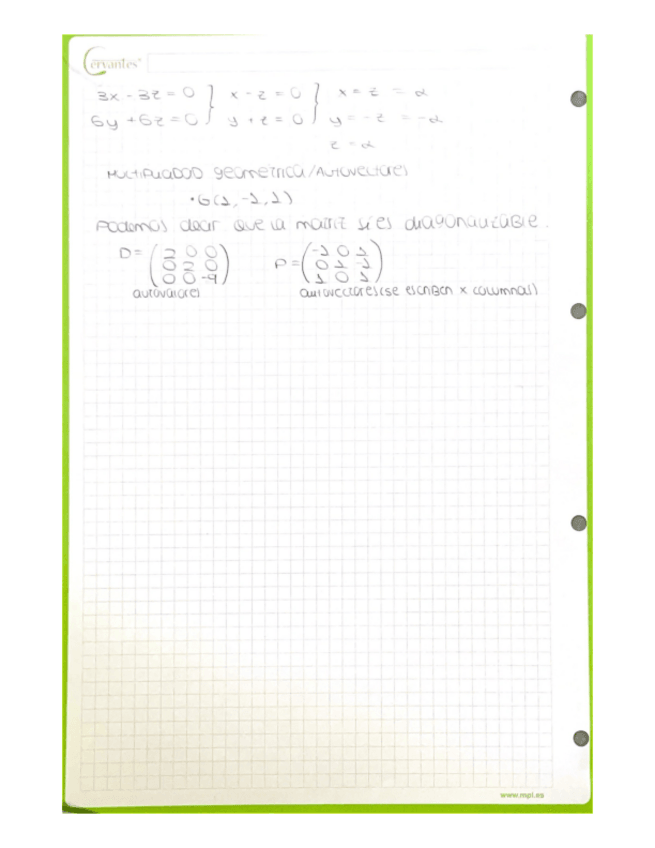 Cervantes
3x - 3z = 0 } x - z = 0 } x = z = α
6y + 6z = 0 } y + z = 0 } y = -z = -α
z = α
MULTIPLICIDAD geométrica/Autovectores
• G(1, -1, 1)
Podemos decir que la matriz sí es diagonalizable.
D = (2 0 0 P = (-1 0 1
0 2 0 0 1 -1
0 0 -4) 1 0 1)
autovalores autovectores (se escriben x columnas)
www.mpl.es